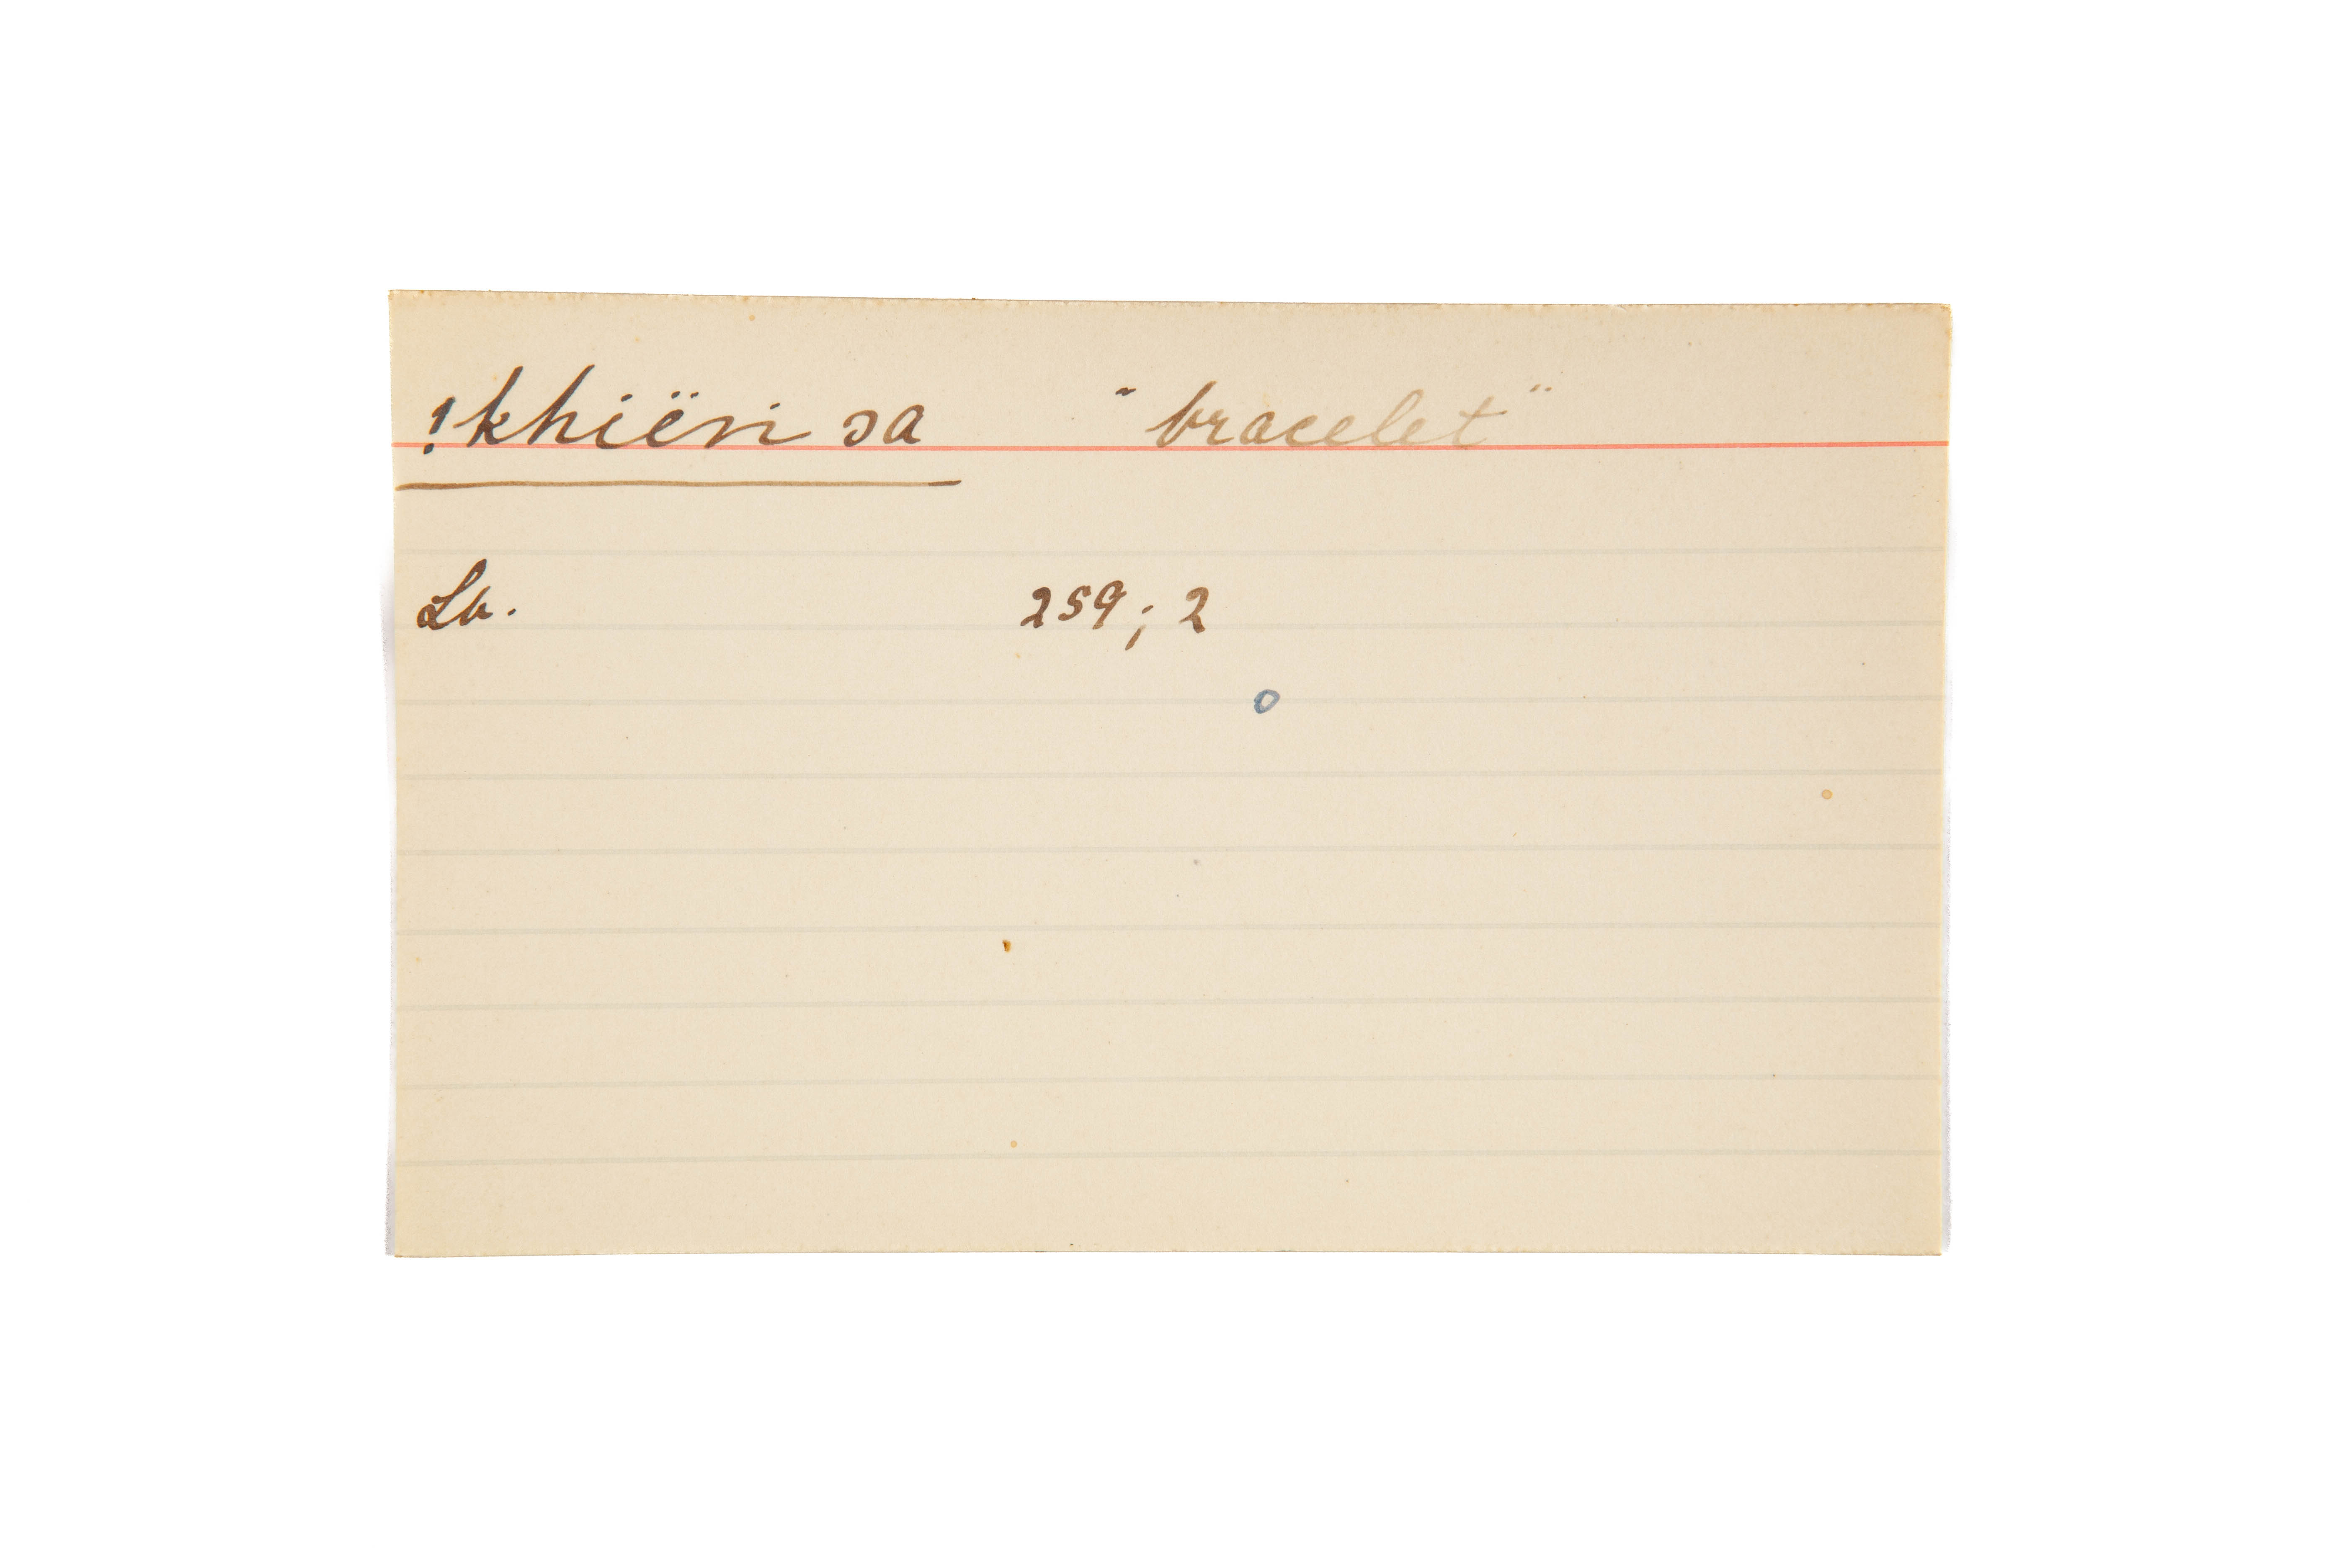 !khiëri sa "bracelet"
Lb. 259; 2
o